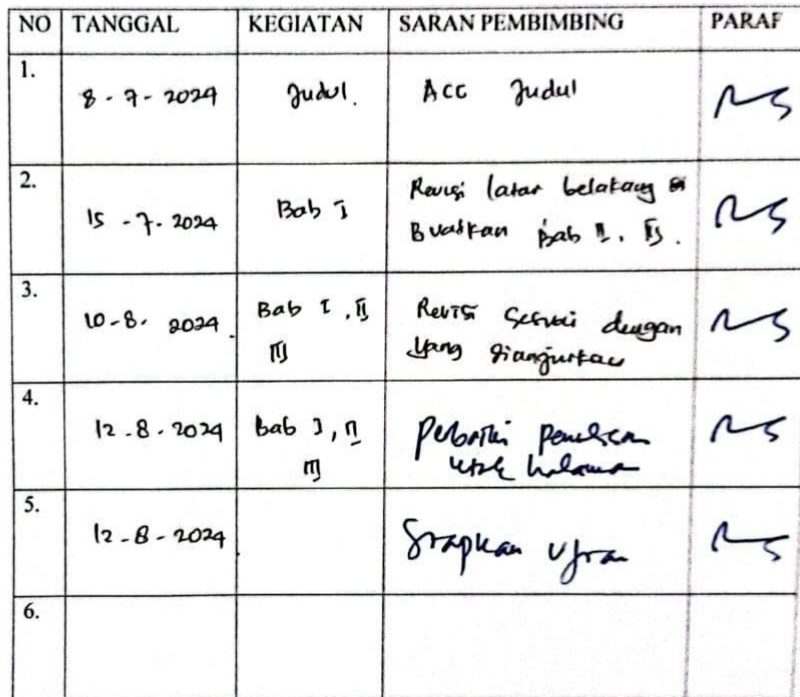 NO TANGGAL KEGIATAN SARAN PEMBIMBING PARAF
1.
8 - 7 - 2024 Judul. ACC Judul
2.
15 - 7 - 2024 Bab I Revisi latar belakang
Buatkan Bab II, III.
3.
10 - 8 - 2024 Bab I, II Revisi sesuai dengan
III yang dianjurkan
4.
12 - 8 - 2024 Bab I, II Perbaiki penulisan
III untuk halaman
5.
12 - 8 - 2024 Siapkan ujian
6.